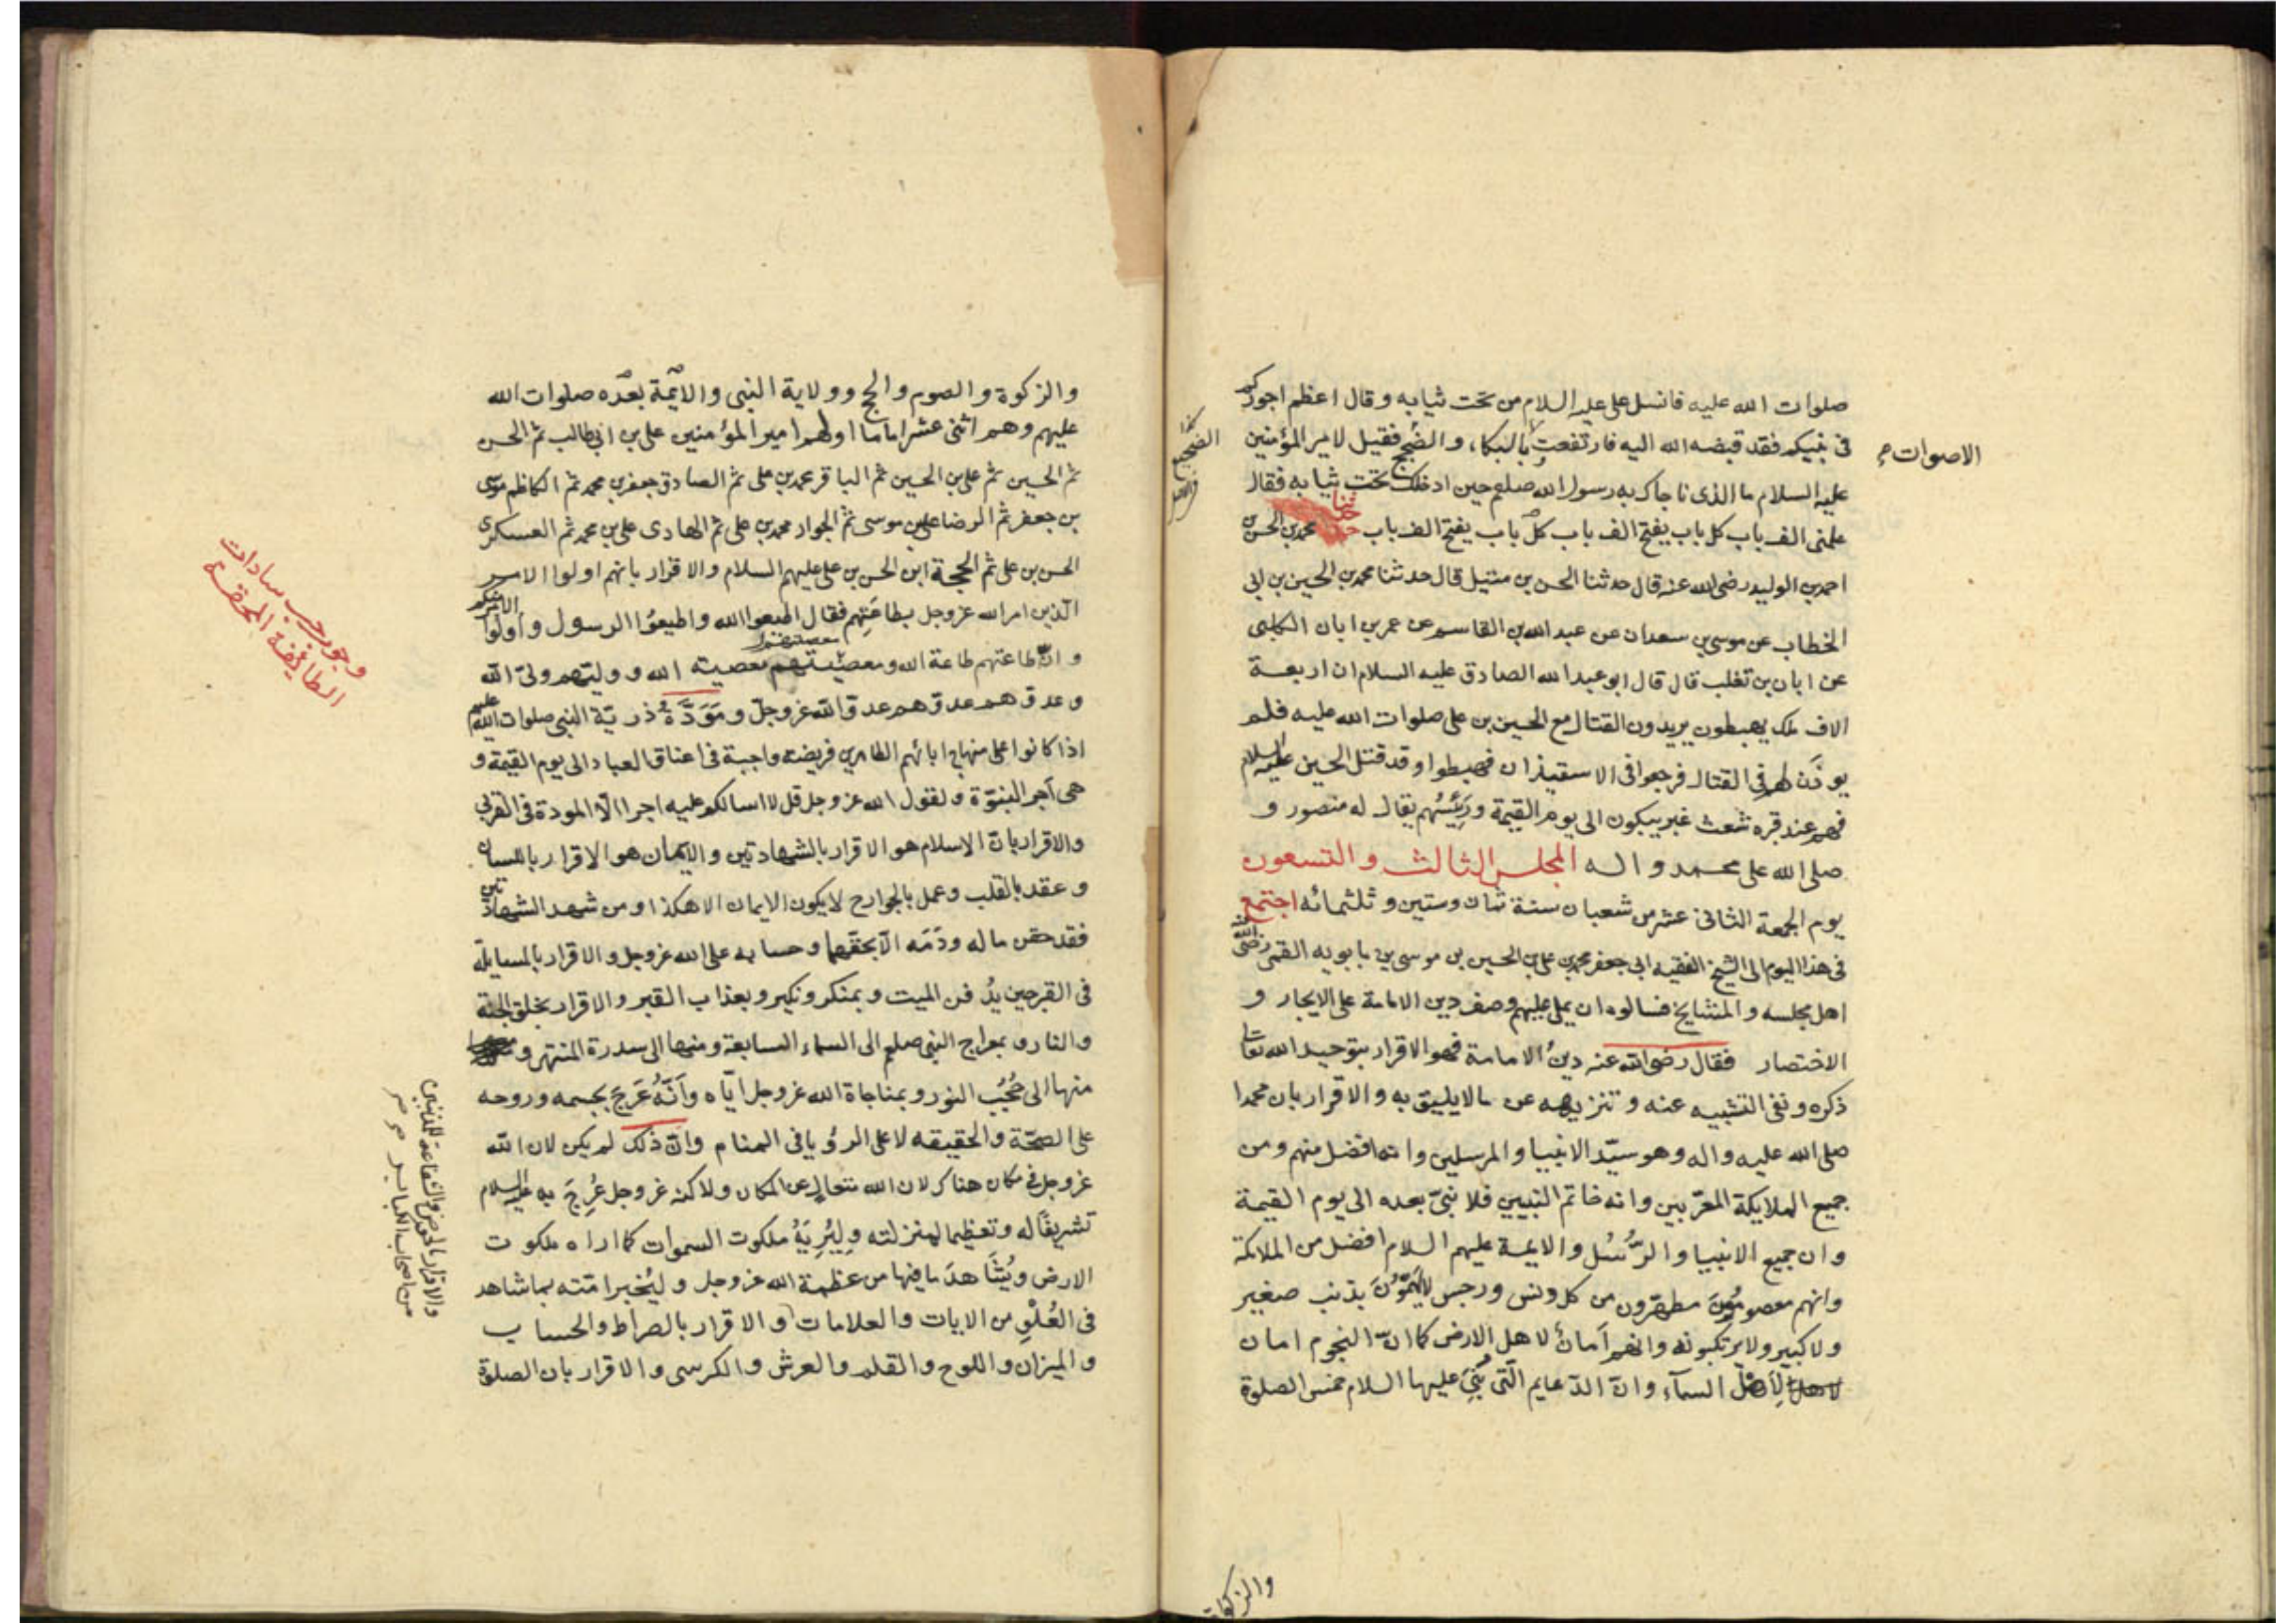 صلوات الله عليه فانسل على عليه السلام من تحت ثيابه وقال اعظم الله اجوركم
فى نبيكم فقد قبضه الله اليه فارتفعت بالبكاء والضجيج فقيل لامير المؤمنين
الاصوات صح
كذا
الضجيج
عليه السلام ما الذى ناجاك به رسول الله صلعم حين ادخلك تحت ثيابه فقال
علمنى الف باب كل باب يفتح الف باب كل باب يفتح الف باب حدثنا محمد بن الحسن بن
احمد بن الوليد رضى الله عنه قال حدثنا الحسن بن متيل قال حدثنا محمد بن الحسين بن ابى
الخطاب عن موسى بن سعدان عن عبد الله بن القاسم عن عمر بن ابان الكلبى
عن ابان بن تغلب قال قال ابو عبد الله الصادق عليه السلام ان اربعة
الاف ملك يهبطون يريدون القتال مع الحسين بن على صلوات الله عليه فلم
يوذَن لهم فى القتال فرجعوا فى الاستيذان فهبطوا وقد قتل الحسين عليه السلام
فهم عند قبره شعث غبر يبكون الى يوم القيمة ورَئِيسُهم يقال له منصور و
صلى الله على محمد واله المجلس الثالث والتسعون
يوم الجمعة الثانى عشر من شعبان سنة ثمان وستين وثلثمائه اجتمع
فى هذا اليوم الى الشيخ الفقيه ابى جعفر محمد بن على بن الحسين بن موسى بن بابويه القمى رضى الله عنه
اهل مجلسه والمشايخ فسالوه ان يملى عليهم وصف دين الامامة على الايجاز و
الاختصار فقال رضى الله عنه دينُ الامامة فهو الاقرار بتوحيد الله تعالى
ذكره ونفى التشبيه عنه وتنزيهه عن ما لا يليق به والاقرار بان محمدا
صلى الله عليه واله وهو سيّد الانبيا والمرسلين وانه افضل منهم ومن
جميع الملايكة المقربين وانه خاتم النبيين فلا نبىّ بعده الى يوم القيمة
وان جميع الانبيا والرُّسُل والايمة عليهم السلام افضل من الملائكة
وانهم معصومُونَ مطهّرون من كل دنس ورجس لا يَهمّونَ بذنب صغير
ولا كبير ولا يرتكبونه وانهم اَمانٌ لاهل الارض كما انّ النجوم امان
لِاَهْلِ السمآء وانّ الدّعايم الّتى بُنِىَ عليها السلام خمس الصلوة
والزكوة
والزكوة والصوم والحج وولاية النبى والائمّة بعدَه صلوات الله
عليهم وهم اثنى عشر اماما اولهم امير المؤمنين على بن ابى طالب ثم الحسن
ثم الحسين ثم على بن الحسين ثم الباقر محمد بن على ثم الصادق جعفر بن محمد ثم الكاظم موسى
بن جعفر ثم الرضا على بن موسى ثم الجواد محمد بن على ثم الهادى على بن محمد ثم العسكرى
الحسن بن على ثم الحجة ابن الحسن بن على عليهم السلام والاقرار بانهم اولوا الامر
الّذين امر الله عز وجل بطاعَتِهم فقال اطيعوا الله واطيعوُا الرسول واُولُوا الامر منكم
وانّ طاعتهم طاعة الله ومعصيتهم معصيته الله ووليّهم ولىّ الله
وعدوّهم عدوّهم عدوّ الله عز وجلّ ومَوَدَّةُ ذريّة النبى صلوات الله عليهم
اذا كانوا على منهاج ابائهم الطاهرين فريضة واجبة فى اعناق العباد الى يوم القيمة و
هى اَجر النبوّة ولقول الله عز وجل قل لا اسالكم عليه اجرا الّا المودة فى القربى
وجوب حب سادات
الطائفة المحقة
والاقرار بانّ الاسلام هو الاقرار بالشهادتين والايمان هو الاقرار باللسان
وعقد بالقلب وعمل بالجوارح لا يكون الايمان الا هكذا ومن شهد الشهادتين
فقد حقن ماله ودَمَه الّا بحقهما وحسابه على الله عز وجل والاقرار بالمسايلة
فى القبر حين يُدفن الميت وبمنكر ونكير وبعذاب القبر والاقرار بخلق الجنّة
والنار وبمعراج النبى صلعم الى السماء السابعة ومنها الى سدرة المنتهى و
منها الى حُجُب النور وبمناجاة الله عز وجل ايّاه واَنَّهُ عَرَجَ بجسمه وروحه
على الصّحّة والحقيقه لا على الرؤيا فى المنام وانّ ذلك لم يكن لان الله
عز وجل فى مكان هناك لان الله متعالٍ عن المكان ولاكنه عز وجل عُرِجَ به عليه السلام
تشريفًا له وتعظيما لمنزلته وليُرِيَهُ ملكوت السموات كما اراه ملكوت
الارض ويُشَاهدَ ما فيها من عظمة الله عز وجل وليُخبر امّته بما شاهد
فى العُلُوِ من الايات والعلامات والاقرار بالصراط والحساب
والميزان واللوح والقلم والعرش والكرسى والاقرار بان الصلوة
والاقرار بالحوض والشفاعة للمذنبين
من اصحاب الكباير صح